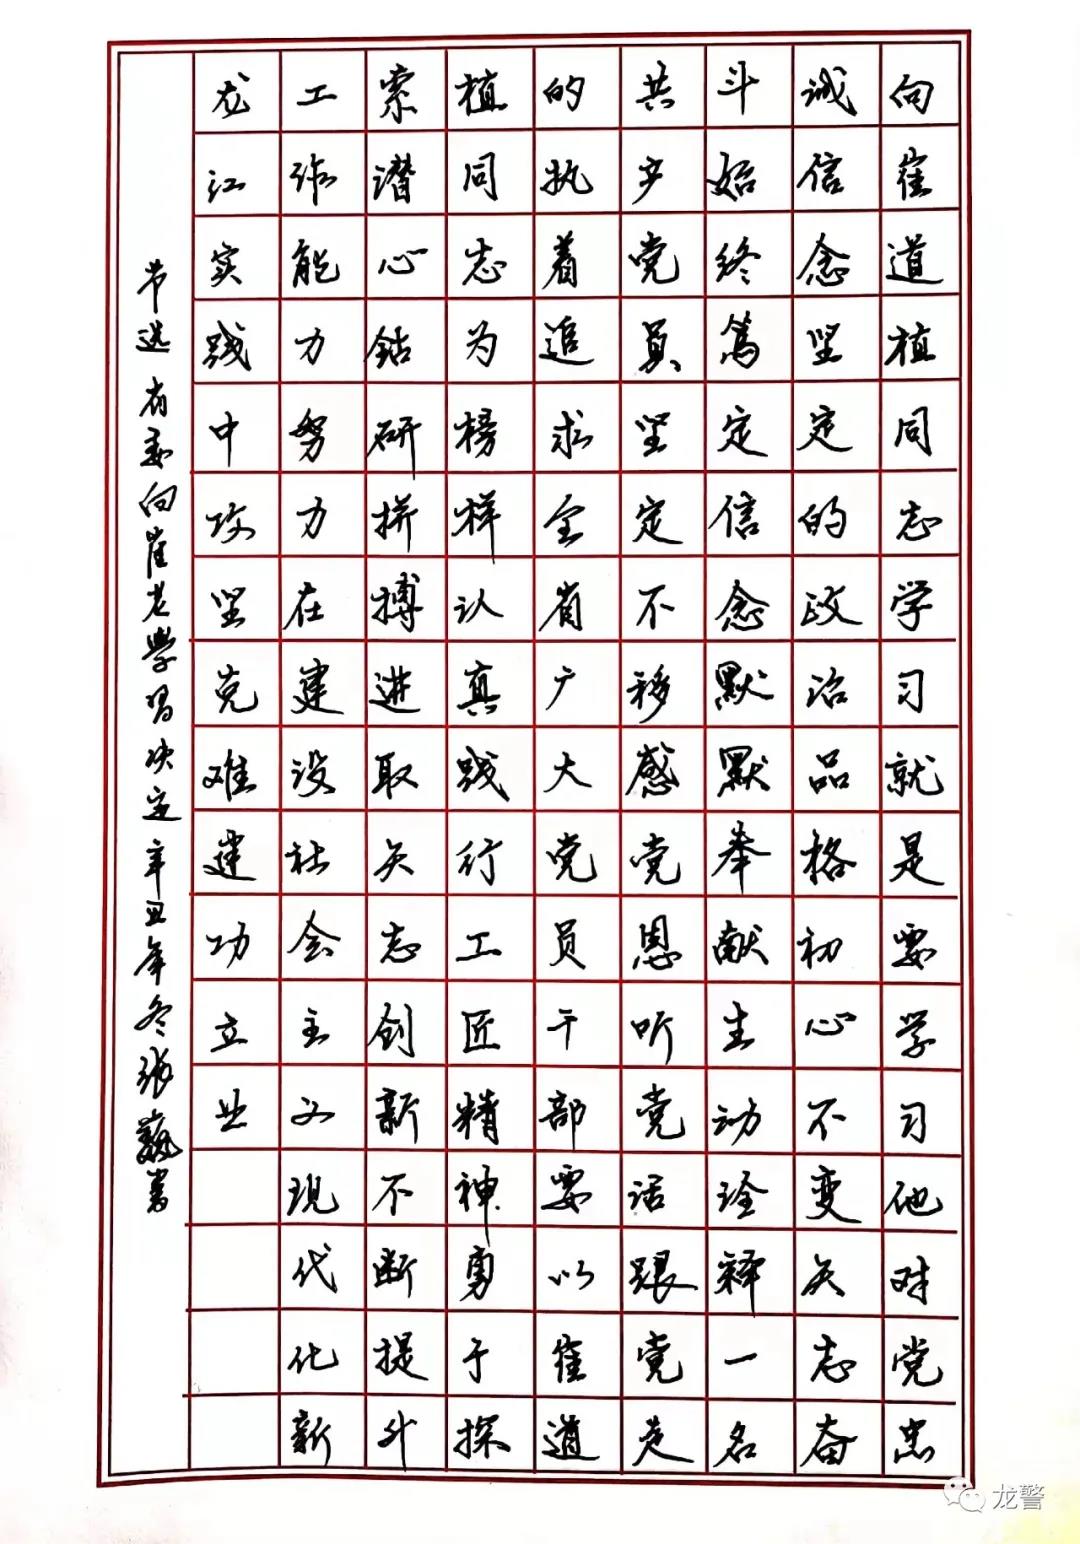 向崔道植同志学习就是要学习他对党忠
诚信念坚定的政治品格初心不变矢志奋
斗始终笃定信念默默奉献生动诠释一名
共产党员坚定不移感党恩听党话跟党走
的执着追求全省广大党员干部要以崔道
植同志为榜样认真践行工匠精神勇于探
索潜心钻研拼搏进取矢志创新不断提升
工作能力努力在建设社会主义现代化新
龙江实践中攻坚克难建功立业
节选省委向崔老學習决定辛丑年冬张巍书
龙警